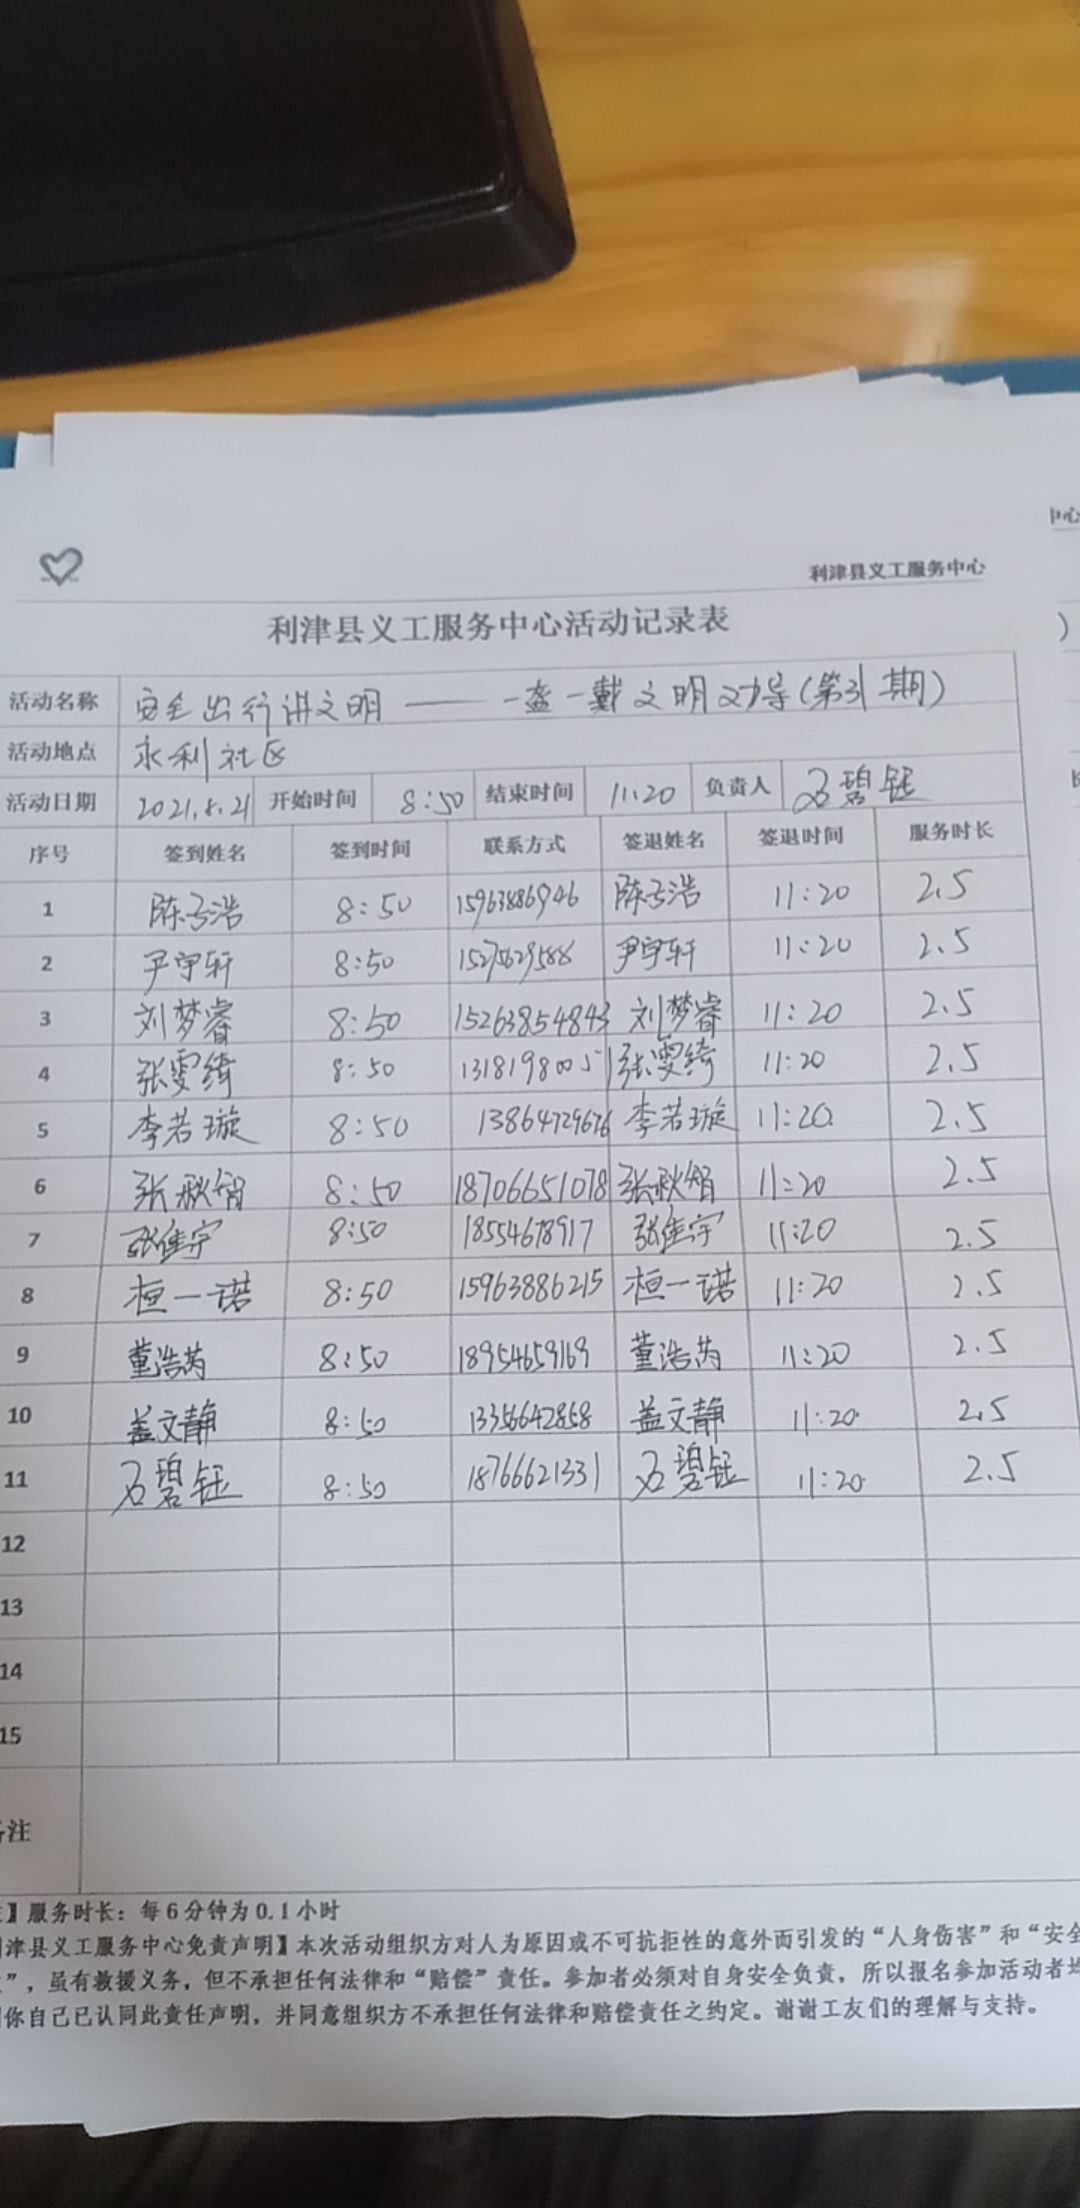 中心
利津县义工服务中心
利津县义工服务中心活动记录表
)
活动名称 安全出行讲文明 —— 一盔一戴文明劝导(第31期)
活动地点 永利社区
活动日期 2021.8.21 开始时间 8:50 结束时间 11:20 负责人 石碧钰
序号 签到姓名 签到时间 联系方式 签退姓名 签退时间 服务时长
1 陈子浩 8:50 15963886946 陈子浩 11:20 2.5
2 尹宇轩 8:50 尹宇轩 11:20 2.5
3 刘梦睿 8:50 15263854843 刘梦睿 11:20 2.5
4 张雯绮 8:50 张雯绮 11:20 2.5
5 李若璇 8:50 13864729676 李若璇 11:20 2.5
6 张秋智 8:50 18706651078 张秋智 11:20 2.5
7 张佳宇 8:50 18554678917 张佳宇 11:20 2.5
8 桓一诺 8:50 15963886215 桓一诺 11:20 2.5
9 董浩芮 8:50 18954659169 董浩芮 11:20 2.5
10 盖文静 8:50 13356642858 盖文静 11:20 2.5
11 石碧钰 8:50 18766621331 石碧钰 11:20 2.5
12
13
14
15
注
】服务时长：每6分钟为0.1小时
津县义工服务中心免责声明】本次活动组织方对人为原因或不可抗拒性的意外而引发的“人身伤害”和“安全
”，虽有救援义务，但不承担任何法律和“赔偿”责任。参加者必须对自身安全负责，所以报名参加活动者均
你自己已认同此责任声明，并同意组织方不承担任何法律和赔偿责任之约定。谢谢工友们的理解与支持。